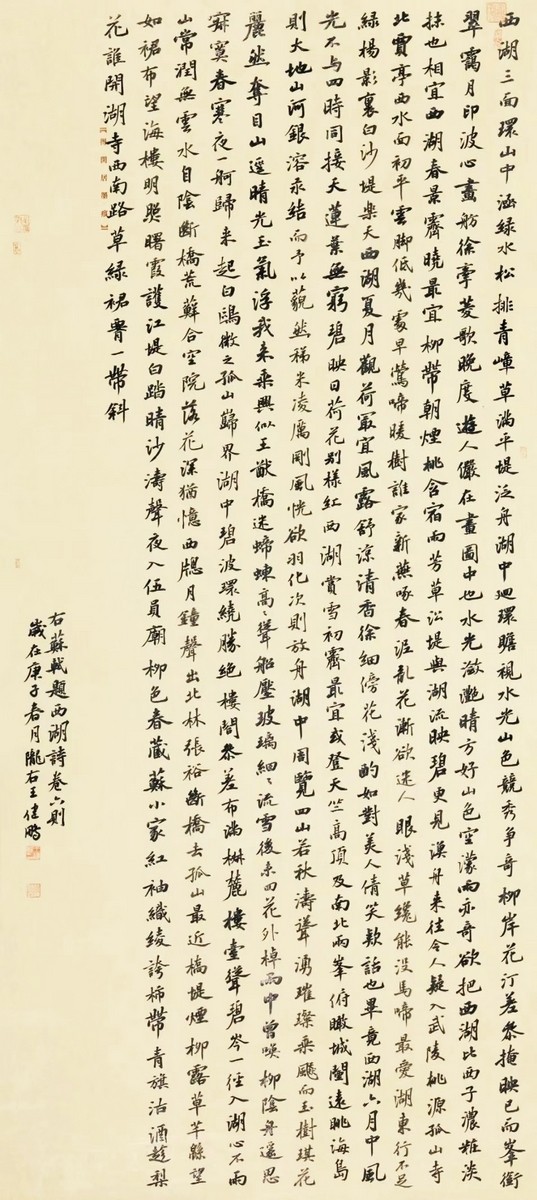 西湖三面環山中涵緑水松排青嶂草滿平堤泛舟湖中迴環瞻視水光山色競秀争奇柳岸花汀差參掩映已而峯銜
翠靄月印波心畫舫徐牽菱歌晚度遊人儼在畫圖中也水光瀲灩晴方好山色空濛雨亦奇欲把西湖比西子濃粧淡
抹也相宜西湖春景霽曉最宜柳帶朝煙桃含宿雨芳草沿堤與湖流映碧更見漁舟来往令人疑入武陵桃源孤山寺
北賈亭西水面初平雲脚低幾處早鶯啼暖樹誰家新燕啄春泥亂花漸欲迷人眼淺草纔能没馬啼最愛湖東行不足
緑楊影裏白沙堤樂天西湖夏月觀荷冣宜風露舒涼清香徐細傍花淺酌如對美人倩笑欵語也畢竟西湖六月中風
光不与四時同接天蓮葉無窮碧映日荷花别様紅西湖賞雪初霽最宜或登天竺高頂及南北兩峯俯瞰城闉遠眺海島
則大地山河銀溶汞結而予以藐然稊米凌厲剛風恍欲羽化次則放舟湖中周覽四山若秋濤聳湧璀璨乘飈而玉樹琪花
麗然奪目山逕晴光玉氣浮我来乘興似王猷橋迷螮蝀高〻聳船壓玻璃細〻流雪後未回花外棹雨中曾喚柳陰舟遥思
寂寞春寒夜一舸歸来起白鷗微之孤山巋界湖中碧波環繞勝絶樓閣叅差布滿椒麓樓臺聳碧岑一徑入湖心不雨
山常潤無雲水自陰斷橋荒蘚合空院落花深猶憶西牕月鐘聲出北林張祜斷橋去孤山最近橋堤煙柳露草芊緜望
如裙布望海樓明照曙霞護江堤白踏晴沙濤聲夜入伍員廟柳色春藏蘇小家紅袖織綾誇柿帶青旗沽酒趁梨
花誰開湖寺西南路草緑裙腰一帶斜
右蘇軾題西湖詩卷六則
歲在庚子春月隴右王佳鵬